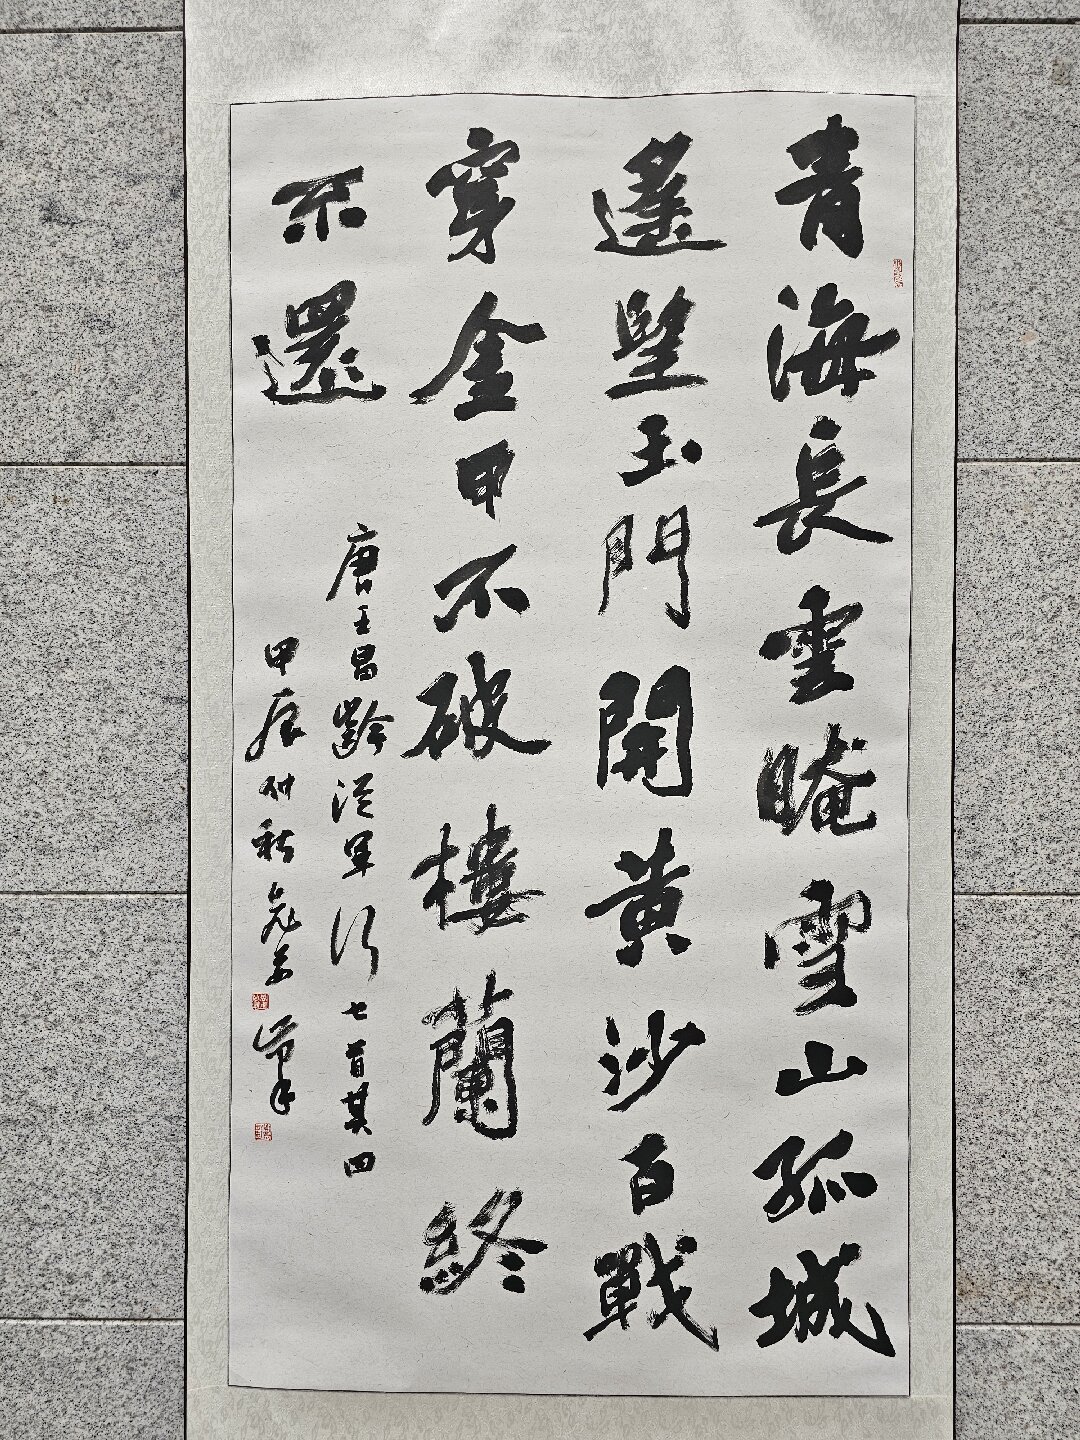 青海長雲晻雪山孤城
遙望玉門開黄沙百戰
穿金甲不破樓蘭終
不還
唐王昌齡從軍行七首其四
甲辰仲秋